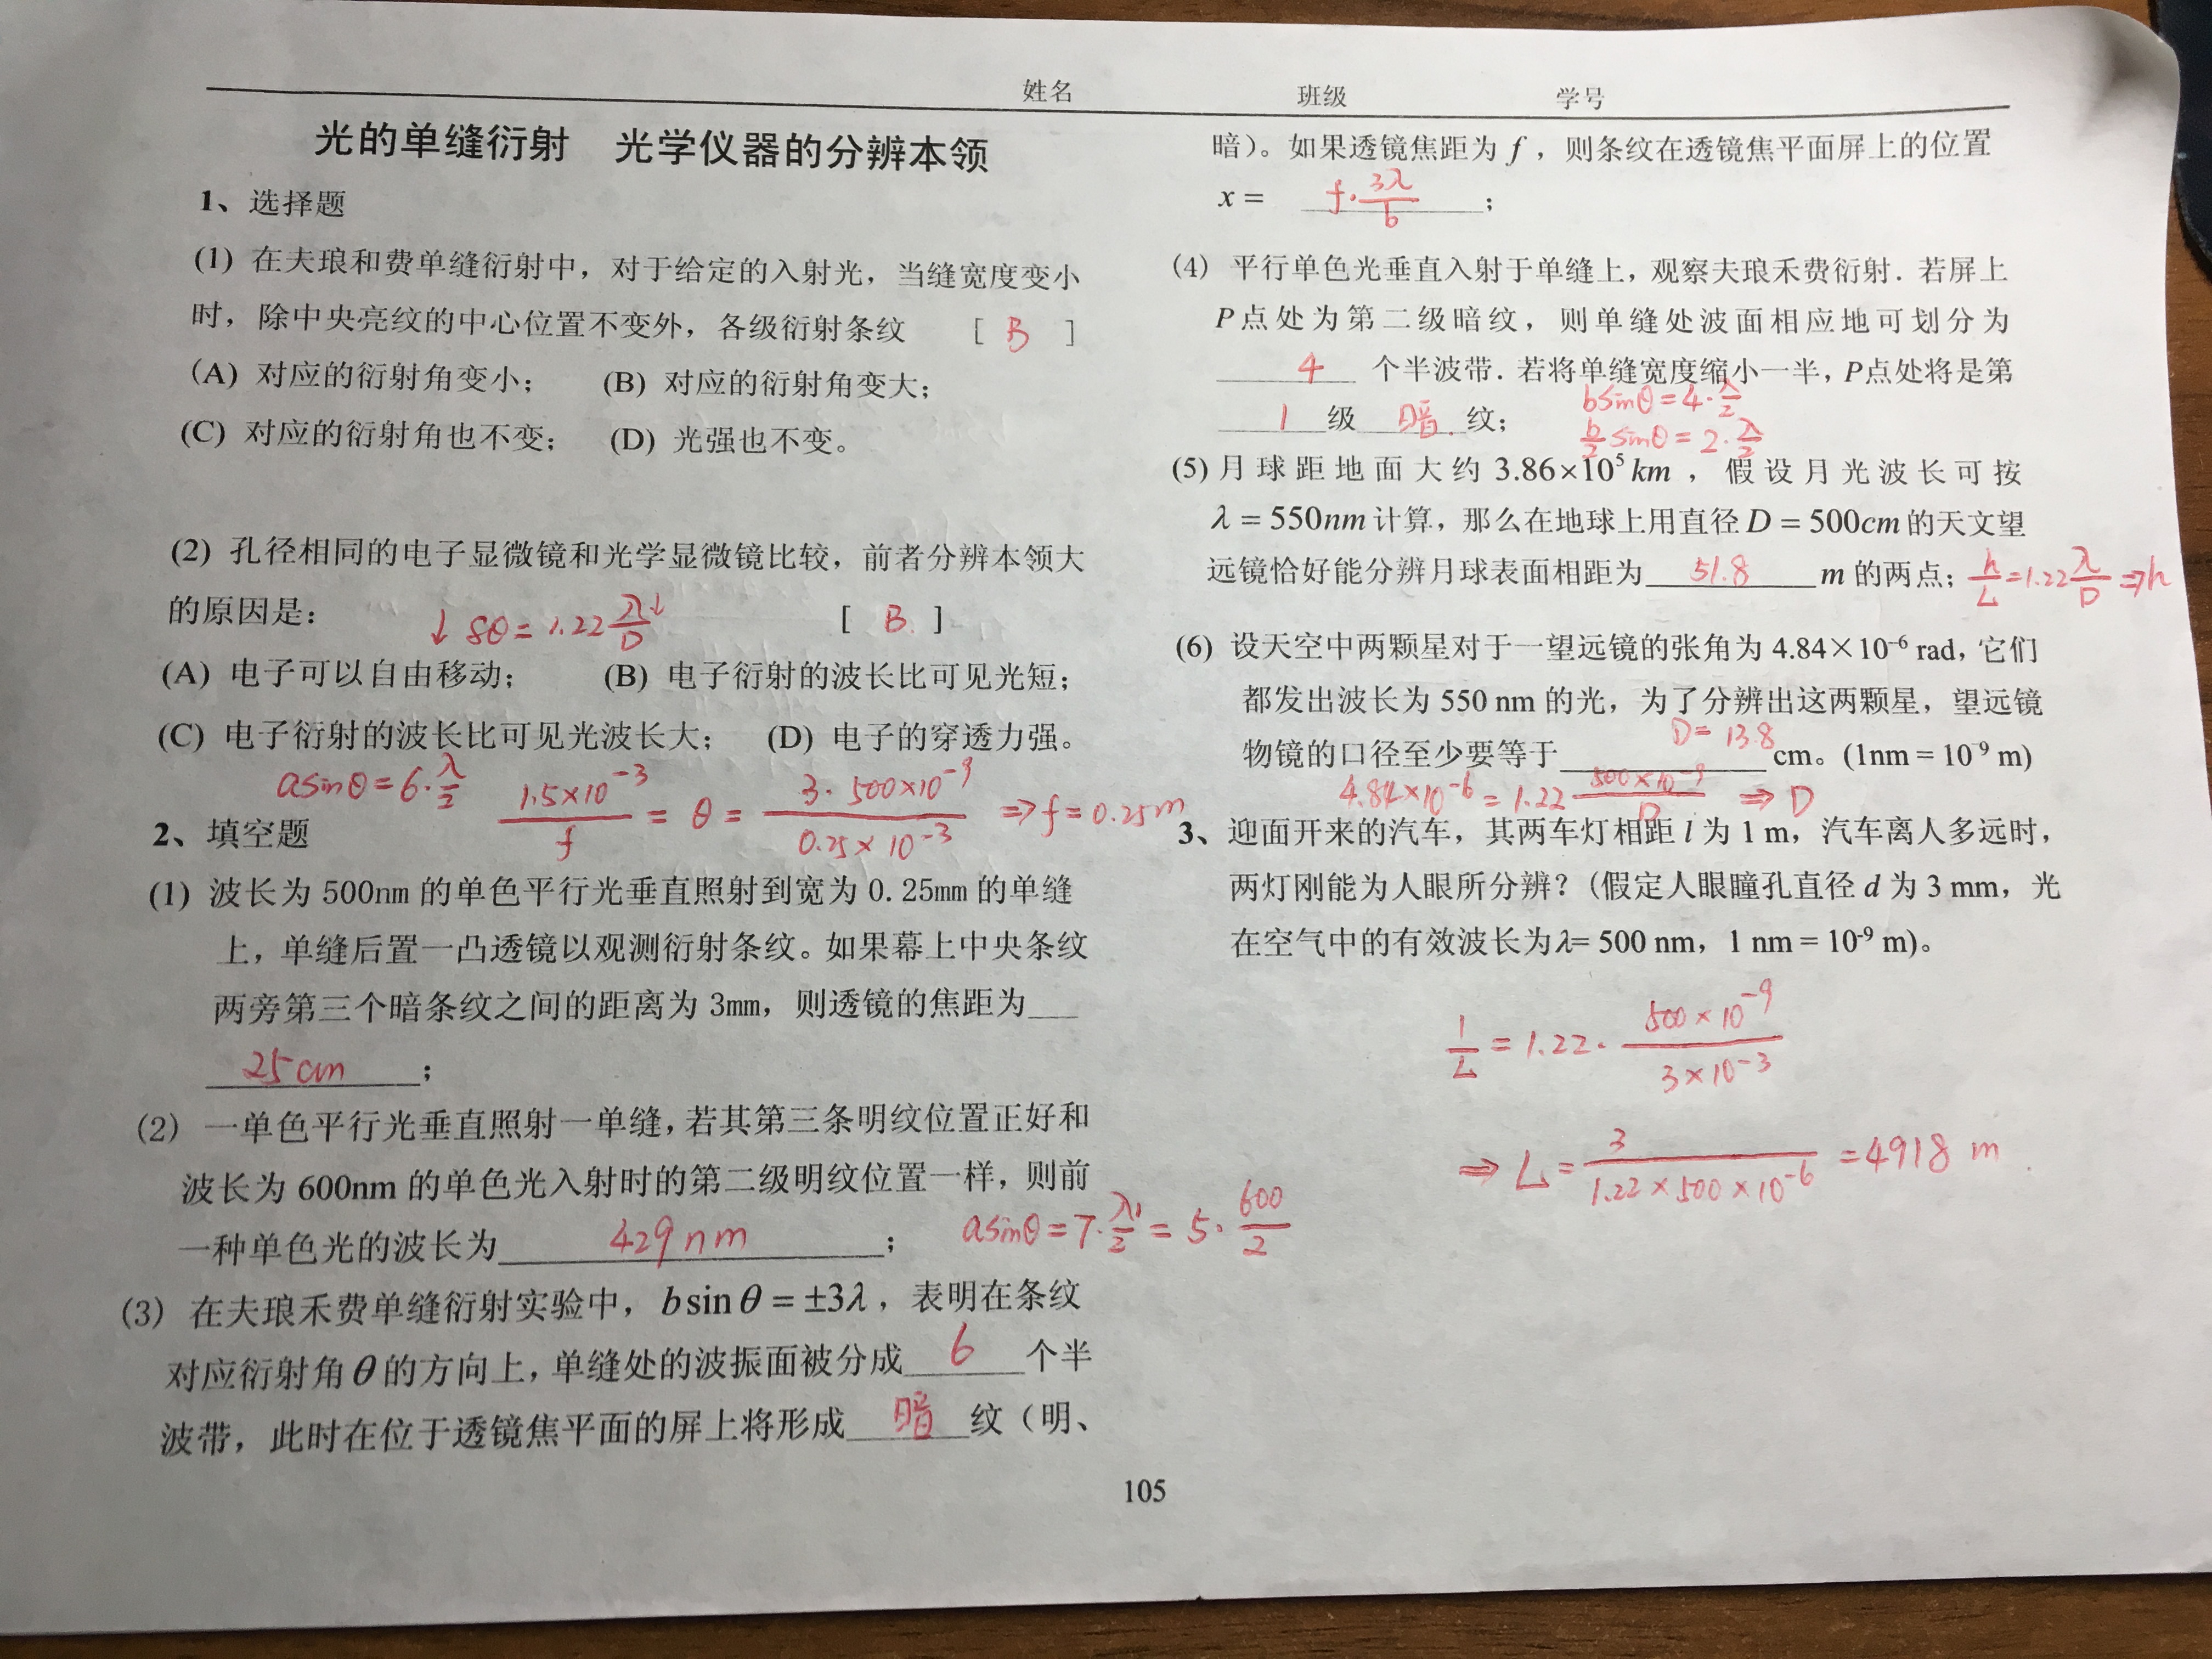 姓名 班级 学号
光的单缝衍射 光学仪器的分辨本领
1、选择题
(1) 在夫琅和费单缝衍射中，对于给定的入射光，当缝宽度变小
时，除中央亮纹的中心位置不变外，各级衍射条纹 [ B ]
(A) 对应的衍射角变小； (B) 对应的衍射角变大；
(C) 对应的衍射角也不变； (D) 光强也不变。
(2) 孔径相同的电子显微镜和光学显微镜比较，前者分辨本领大
的原因是： ↓ δθ = 1.22 λ↓/D [ B. ]
(A) 电子可以自由移动； (B) 电子衍射的波长比可见光短；
(C) 电子衍射的波长比可见光波长大； (D) 电子的穿透力强。
a sinθ = 6·λ/2 1.5×10⁻³/f = θ = 3·500×10⁻⁹/0.25×10⁻³ ⇒ f = 0.25m
2、填空题
(1) 波长为 500nm 的单色平行光垂直照射到宽为 0.25mm 的单缝
上，单缝后置一凸透镜以观测衍射条纹。如果幕上中央条纹
两旁第三个暗条纹之间的距离为 3mm，则透镜的焦距为__
25cm；
(2) 一单色平行光垂直照射一单缝，若其第三条明纹位置正好和
波长为 600nm 的单色光入射时的第二级明纹位置一样，则前
一种单色光的波长为 429nm； a sinθ = 7·λ₁/2 = 5·600/2
(3) 在夫琅禾费单缝衍射实验中，b sin θ = ±3λ，表明在条纹
对应衍射角θ的方向上，单缝处的波振面被分成 6 个半
波带，此时在位于透镜焦平面的屏上将形成 暗 纹（明、
暗）。如果透镜焦距为 f，则条纹在透镜焦平面屏上的位置
x = f·3λ/b；
(4) 平行单色光垂直入射于单缝上，观察夫琅禾费衍射．若屏上
P点处为第二级暗纹，则单缝处波面相应地可划分为
4 个半波带．若将单缝宽度缩小一半，P点处将是第
1 级 暗 纹；
b sinθ = 4·λ/2
b/2 sinθ = 2·λ/2
(5) 月球距地面大约 3.86×10⁵ km，假设月光波长可按
λ = 550nm 计算，那么在地球上用直径 D = 500cm 的天文望
远镜恰好能分辨月球表面相距为 51.8 m 的两点； h/L = 1.22 λ/D ⇒ h
(6) 设天空中两颗星对于一望远镜的张角为 4.84×10⁻⁶ rad，它们
都发出波长为 550 nm 的光，为了分辨出这两颗星，望远镜
物镜的口径至少要等于 D = 13.8 cm。(1nm = 10⁻⁹ m)
4.84×10⁻⁶ = 1.22 500×10⁻⁹/D ⇒ D
3、迎面开来的汽车，其两车灯相距 l 为 1 m，汽车离人多远时，
两灯刚能为人眼所分辨？(假定人眼瞳孔直径 d 为 3 mm，光
在空气中的有效波长为λ= 500 nm，1 nm = 10⁻⁹ m)。
1/L = 1.22·500×10⁻⁹/3×10⁻³
⇒ L = 3/1.22×500×10⁻⁶ = 4918 m.
105